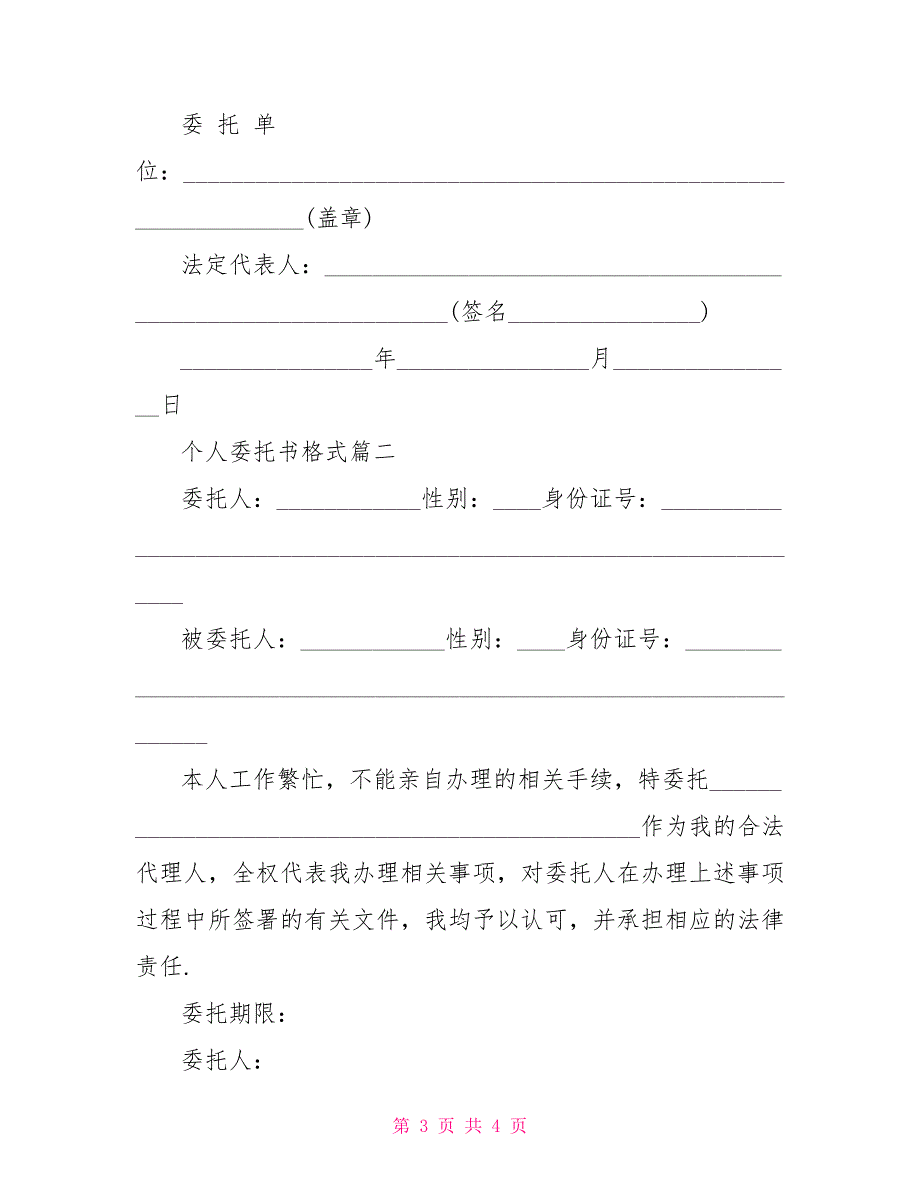 委 托 单
位：__________________________________________________
______________(盖章)
法定代表人：______________________________________
__________________________(签名________________)
________________年________________月______________
__日
个人委托书格式篇二
委托人：____________性别：____身份证号：__________
______________________________________________________
____
被委托人：____________性别：____身份证号：________
______________________________________________________
______
本人工作繁忙，不能亲自办理的相关手续，特委托______
__________________________________________作为我的合法
代理人，全权代表我办理相关事项，对委托人在办理上述事项
过程中所签署的有关文件，我均予以认可，并承担相应的法律
责任.
委托期限：
委托人：
第 3 页 共 4 页